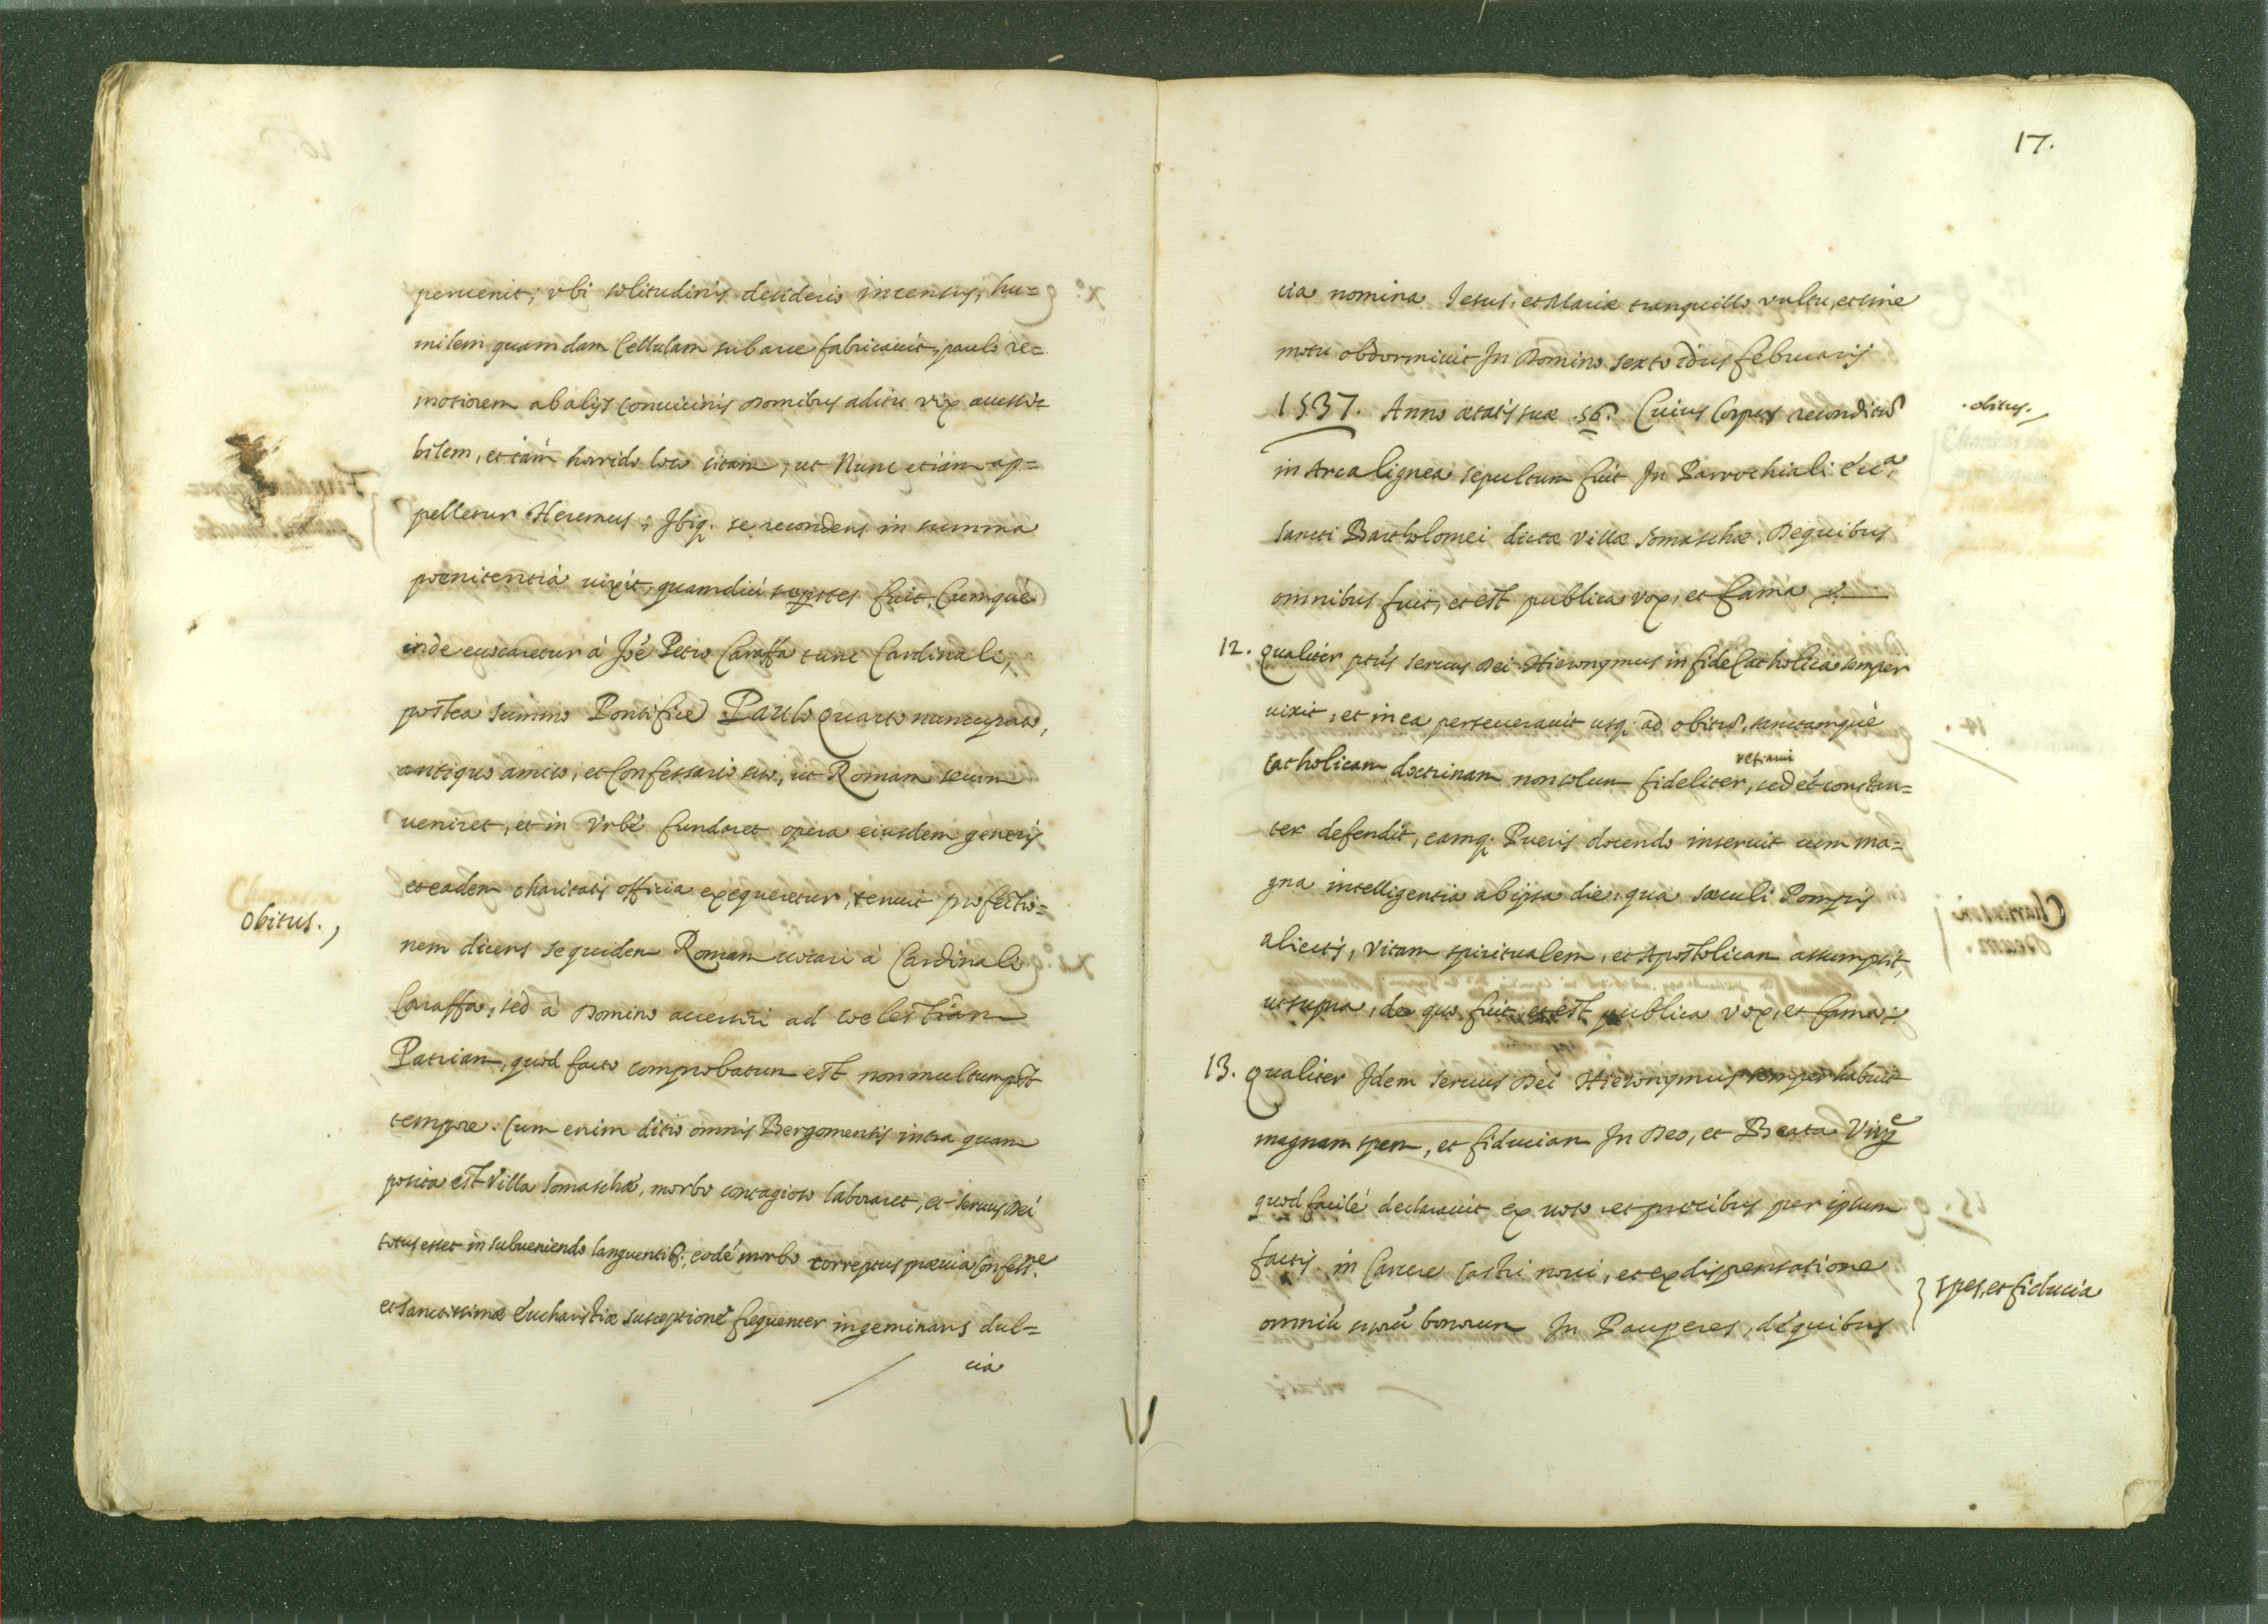 peruenit; vbi solitudinis desiderio incensus, hu=
milem quamdam Cellulam sub arce fabricauit, paulo re=
motiorem ab alijs conuicinis Domibus aditu vix accessi=
bilem, et tám horrido loco sitam, ut Nunc etiám ap=
pelletur Heremus; Ibiq; se recondens in summa
poenitentiá uixit, quamdiú supstes fuit. Cumquè
inde euocaretur à Joe Petro Caraffa tunc Cardinali,
postea summo Pontifice Paulo Quarto nuncupato,
antiquo amico, et Confessario suo, ut Romam secum
ueniret, et in Vrbé fundaret opera eiusdem generis
et eadem charitatis officia exequeretur, renuit profectio=
obitus.
nem dicens se quidem Romam uocari à Cardinali
Caraffa, sed à Domino accersiri ad coelestiam
Patriam, quod facto comprobatum est non multum post
tempore. Cum enim ditio omnis Bergomensis intra quam
posita est Villa Somaschæ, morbo contagioso laboraret, et seruus Dei
totus esset in subueniendo languentib; eodé morbo correptus præuia Confessne
et sanctissimæ Eucharistiæ susceptione frequenter ingeminans dul=
cia
17.
cia nomina Iesus, et Mariæ tranquillo vultu, et sine
motu obdormiuit In Domino sexto idus februarij
1537. Anno ætatis suæ 56. Cuius Corpus reconditũ
obitus.
in Arca lignea sepultum fuit In Parrochiali Ecca
sancti Bartholomei dictæ Villæ Somaschæ. De quibus
omnibus fuit, et est publica vox, et fama
12. Qualiter ptus seruus Dei Hieronymus in fide Catholica semper
uixit, et in ea perseuerauit usq; ad obitũ, sanctamquè
Catholicam doctrinam non solum fideliter, sed et constan=
ter defendit, eamq; Pueris docendo inseruit cum ma=
gna intelligentia ab ipsa die, qua sæculi Pompis
abiectis, vitam spiritualem, et Apostolicam assumpsit,
ut supra, de quo fuit, et est publica vox, et fama
13. Qualiter Idem seruus Dei Hieronymus semper habuit
magnam spem, et fiduciam In Deo, et Beata Virge
quod facilè declarauit ex uoto et precibus per ipsum
factis, in Carcere Castri noui, et ex dispensatione
spes, et fiducia
omniũ suorũ bonorum In Pauperes, de quibus